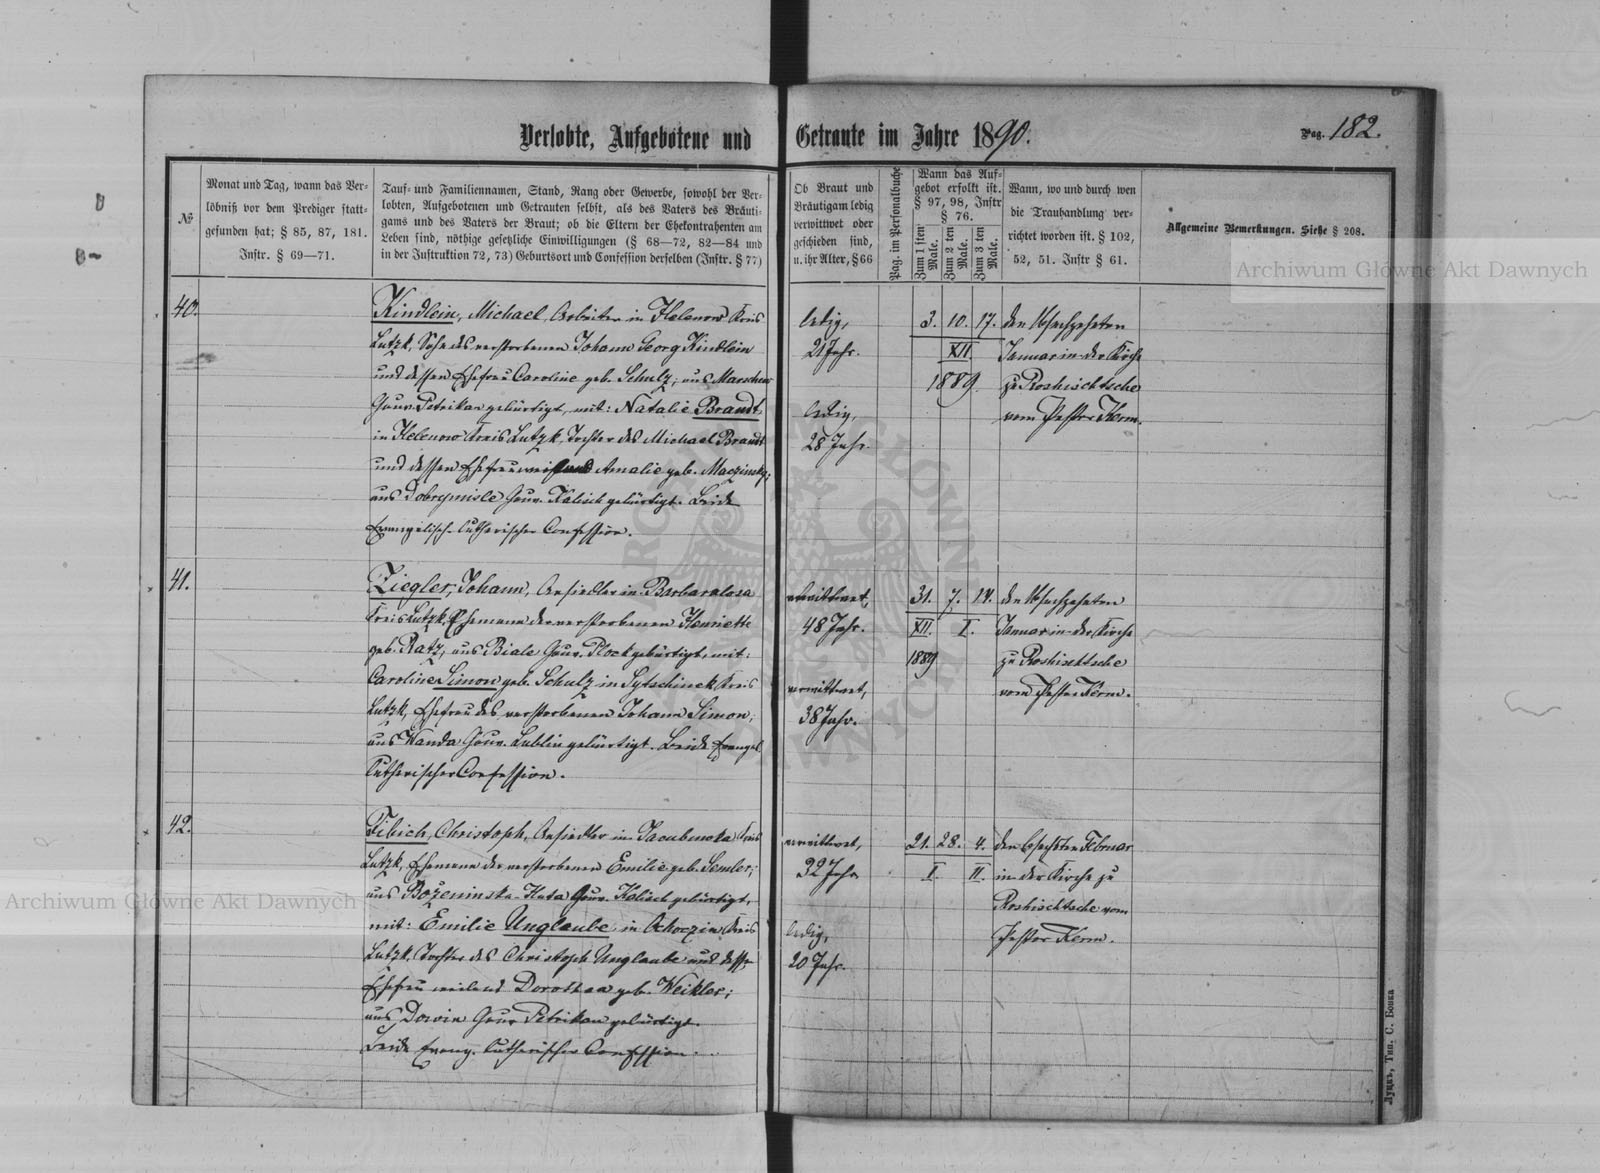 Verlobte, Aufgebotene und Getraute im Jahre 1890.
Pag. 182.
№
Monat und Tag, wann das Ver-
löbniß vor dem Prediger statt-
gefunden hat; § 85, 87, 181.
Instr. § 69—71.
Tauf- und Familiennamen, Stand, Rang oder Gewerbe, sowohl der Ver-
lobten, Aufgebotenen und Getrauten selbst, als des Vaters des Bräuti-
gams und des Vaters der Braut; ob die Eltern der Ehekontrahenten am
Leben sind, nöthige gesetzliche Einwilligungen (§ 68—72, 82—84 und
in der Justruktion 72, 73) Geburtsort und Confession derselben (Instr. § 77)
Ob Braut und
Bräutigam ledig
verwittwet oder
geschieden sind,
u. ihr Alter, § 66
Pag. im Personalbuche
Wann das Auf-
gebot erfolkt ist.
§ 97, 98, Instr
§ 76.
Zum 1 sten Male.
Zum 2 ten Male.
Zum 3 ten Male.
Wann, wo und durch wen
die Trauhandlung ver-
richtet worden ist. § 102,
52, 51. Instr § 61.
Allgemeine Bemerkungen. Siehe § 208.
40.
Kindlein, Michael, Arbeiter in Helenow Kreis
Lutzk, Sohn des verstorbenen Johann Georg Kindlein
und dessen Ehefrau Caroline geb. Schulz, aus
Gouv. Petrikau gebürtigt, mit: Natalie Brandt
in Helenow Kreis Lutzk, Tochter des Michael Brandt
und dessen Ehefrau weiland Amalie geb.
aus Dobrymisle Gouv. Kalisch gebürtigt. Beide
Evangelisch-Lutherischer Confession.
ledig,
21 Jahr.
ledig,
28 Jahr.
3. 10. 17.
XII
1889.
den Sechzehnten
Januar in der Kirche
zu Roshischtsche
vom Pastor Kerm.
41.
Ziegler, Johann, Ansiedler in Barbaralasa
Kreis Lutzk, Ehemann der verstorbenen Henriette
geb. Ratz, aus Biale Gouv. Plock gebürtigt, mit:
Caroline Simon geb. Schulz in Sytschinek Kreis
Lutzk, Ehefrau des verstorbenen Johann Simon;
aus Wanda Gouv. Lublin gebürtigt. Beide Evangel.
Lutherischer Confession.
verwittwet,
48 Jahr.
verwittwet,
38 Jahr.
31. 7. 14.
XII. I.
1889
den Sechzehnten
Januar in der Kirche
zu Roshischtsche
vom Pastor Kerm.
42.
Fibich, Christoph, Ansiedler in Jacubuwka Kreis
Lutzk, Ehemann der verstorbenen Emilie geb. Semler;
aus Bozeninska-Huta Gouv. Kalisch gebürtigt,
mit: Emilie Unglaube in Kreis
Lutzk, Tochter des Christoph Unglaube und dessen
Ehefrau weiland Dorothea geb. Weikler;
aus Gouv Petrikau gebürtigt.
Beide Evang. Lutherischer Confession.
verwittwet,
32 Jahr
ledig,
20 Jahr.
21. 28. 4.
I. II.
den Sechsten Februar
in der Kirche zu
Roshischtsche vom
Pastor Kerm.
Луцкъ, Тип. С. Бонка
Archiwum Główne Akt Dawnych
Archiwum Główne Akt Dawnych